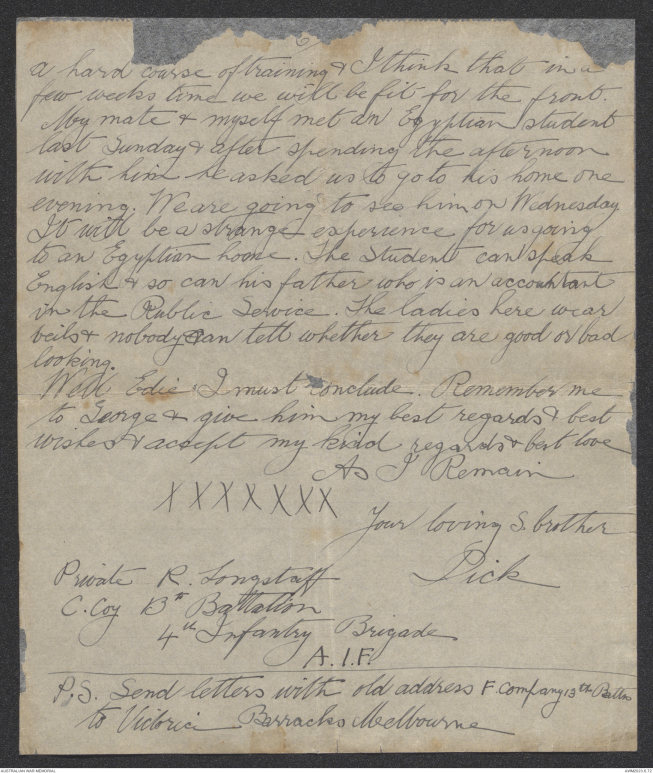 a hard course of training & I think that in a
few weeks time we will be fit for the front.
My mate & myself met an Egyptian student
last Sunday & after spending the afternoon
with him he asked us to go to his home one
evening. We are going to see him on Wednesday
It will be a strange experience for us going
to an Egyptian home. The Student can speak
English & so can his father who is an accountant
in the Public Service. The ladies here wear
veils & nobody can tell whether they are good or bad
looking.
Well Edie I must conclude. Remember me
to George & give him my best regards & best
wishes & accept my kind regards & best love
As I Remain
XXXXXXX
Your loving S. brother
Dick
Private R. Longstaff
C. Coy 13th Battalion
4th Infantry Brigade
A.I.F.
P.S. Send letters with old address F. Company 13th Battn
to Victoria Barracks Melbourne
AUSTRALIAN WAR MEMORIAL